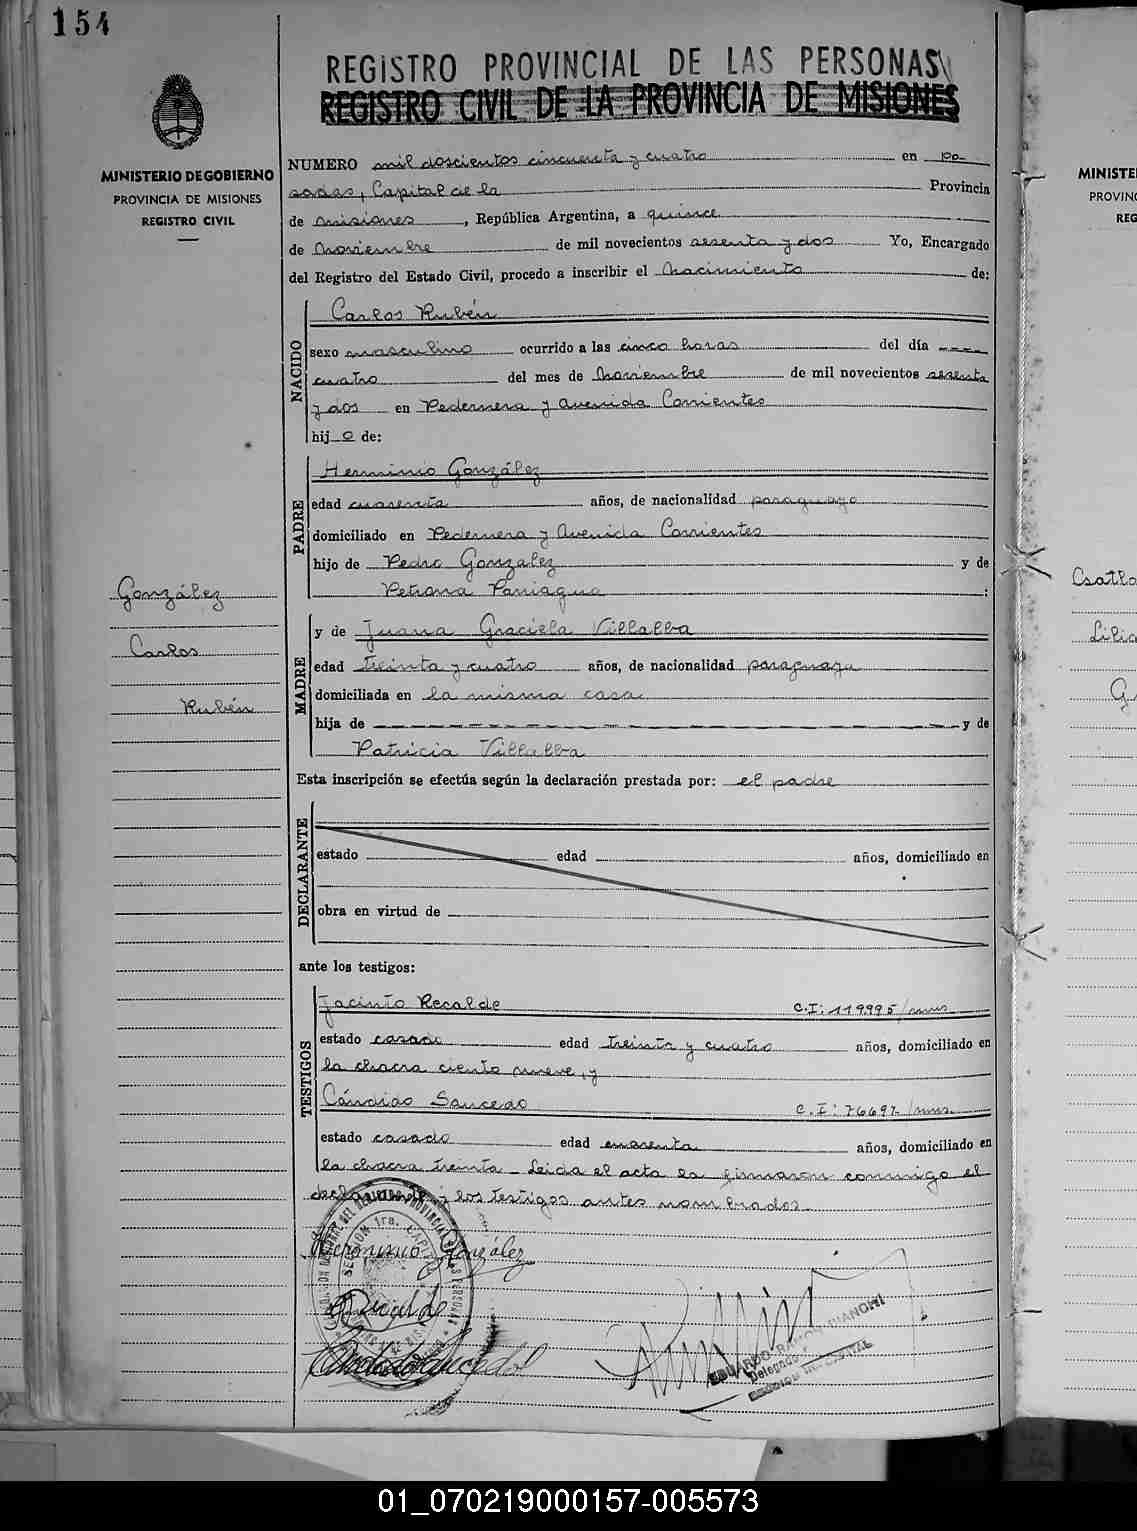 154
REGISTRO PROVINCIAL DE LAS PERSONAS
REGISTRO CIVIL DE LA PROVINCIA DE MISIONES
MINISTERIO DE GOBIERNO
PROVINCIA DE MISIONES
REGISTRO CIVIL
NUMERO mil doscientos cincuenta y cuatro en Po-
sadas, Capital de la Provincia
de Misiones, República Argentina, a quince
de Noviembre de mil novecientos sesenta y dos Yo, Encargado
del Registro del Estado Civil, procedo a inscribir el Nacimiento de:
NACIDO
Carlos Rubén
sexo masculino ocurrido a las cinco horas del día ----
cuatro del mes de Noviembre de mil novecientos sesenta
y dos en Pedernera y Avenida Corrientes
hij o de:
PADRE
Herminio González
edad cuarenta años, de nacionalidad paraguayo
domiciliado en Pedernera y Avenida Corrientes
hijo de Pedro Gonzalez y de
Petrona Paniagua :
González
Carlos
Rubén
MADRE
y de Juana Graciela Villalba
edad treinta y cuatro años, de nacionalidad paraguaya
domiciliada en la misma casa
hija de — — — — — — — — y de
Patricia Villalba
Esta inscripción se efectúa según la declaración prestada por: el padre
DECLARANTE
estado edad años, domiciliado en
obra en virtud de
ante los testigos:
TESTIGOS
Jacinto Recalde C.I: 119.995/mnes
estado casado edad treinta y cuatro años, domiciliado en
la chacra ciento nueve, y
Cándido Saucedo C.I: 76697/mnes.
estado casado edad cuarenta años, domiciliado en
la chacra treinta - Leida el acta la firmaron conmigo el
declarante y los testigos antes nombrados.
Herminio González
Recalde
EDUARDO RAMON BIANCHI
Delegado
MINISTE
PROVIN
REG
Csatlo
Lilia
G
01_070219000157-005573